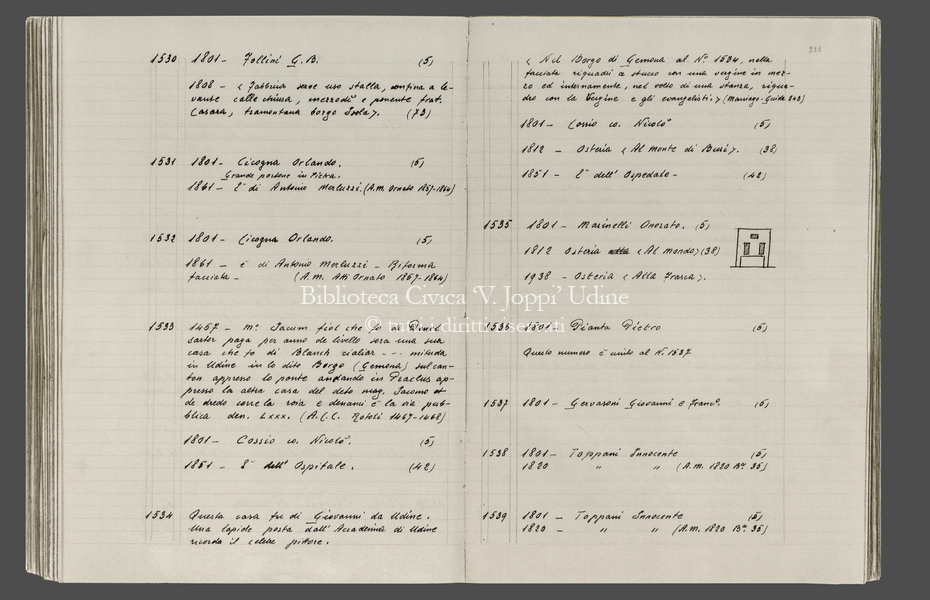 1530 1801 - Follini G. B. (5)
1808 - « Fabbrica ad uso stalla, confina a le-
vante calle chiusa, mezzodì e ponente frat.
Casara, tramontana borgo Isola ». (73)
1531 1801 - Cicogna Orlando. (5)
Grande portone in Pietra.
1861 - È di Antonio Merluzzi. (A.M. Ornato 1857-1864)
1532 1801 - Cicogna Orlando. (5)
1861 - è di Antonio Merluzzi - Riforma
facciata - (A. M. Atti Ornato 1857-1864)
1533 1467 - Mº Jacum fiol che fo di
sartor paga per anno de livello sora una sua
casa che fo di Blanch cialiar --- metuda
in Udine in lo dito Borgo (Gemona) sul can-
ton appresso lo ponte andando in Praclus ap-
presso la altra casa del deto mag. Jacomo et
de drede corre la roia e denanci è la via pub-
blica den. Lxxx. (A.C.C. Rotoli 1467-1468)
1801 - Cossio co. Nicolò. (5)
1851 - È dell' Ospitale. (42)
1534 Questa casa fu di Giovanni da Udine.
Una lapide posta dall' Accademia di Udine
ricorda il celebre pittore.
238
« Nel Borgo di Gemona al Nº 1534, nella
facciata riquadri a stucco con una vergine in mez-
zo ed internamente, nel volto di una stanza, riqua-
dro con la Vergine e gli evangelisti. » (Maniago - Guida 243)
1801 - Cossio co. Nicolò (5)
1812 - Osteria « Al monte di Buri ». (38)
1851 - È dell' Ospedale - (42)
1535 1801 - Marinelli Onorato. (5)
1812 Osteria « Al mondo » (38)
1938 - Osteria « Alla Frasca ».
1536 1801 - Pianta Pietro (5)
Questo numero è unito al N. 1537
1537 1801 - Gervasoni Giovanni e Francº. (5)
1538 1801 - Toppani Innocente (5)
1820 " " (A.M. 1820 Bª 35)
1539 1801 - Toppani Innocente (5)
1820 - " " (A.M. 1820 Bª 35)
Biblioteca Civica 'V. Joppi' Udine
© tutti i diritti riservati